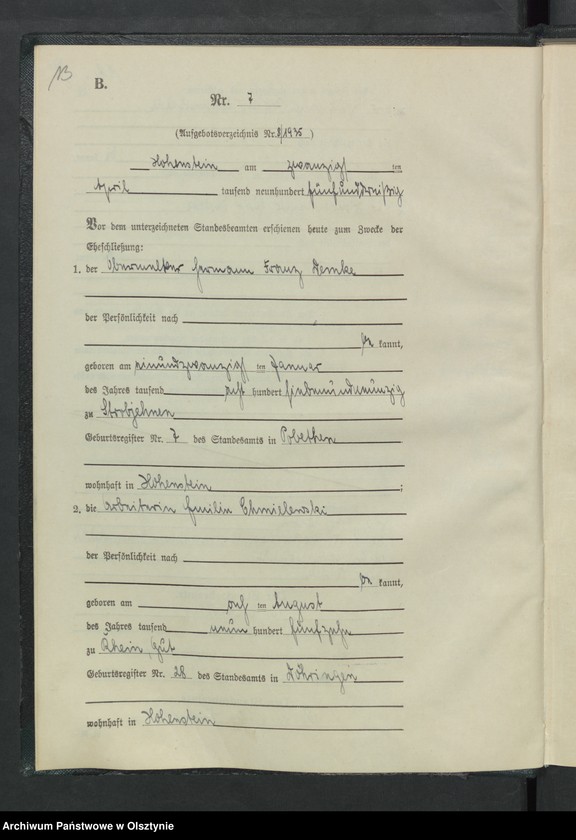 B.
Nr. 7
(Aufgebotsverzeichnis Nr. 8/1935)
Hohenstein am zwanzigsten
April tausend neunhundert fünfunddreißig
Vor dem unterzeichneten Standesbeamten erschienen heute zum Zwecke der
Eheschließung:
1. der Obermelker Hermann Franz
der Persönlichkeit nach
kannt,
geboren am einundzwanzigsten Januar
des Jahres tausend acht hundert siebenundneunzig
zu Strobjehnen
Geburtsregister Nr. 7 des Standesamts in Pobethen
wohnhaft in Hohenstein;
2. die Arbeiterin Emilie Chmielewski
der Persönlichkeit nach
kannt,
geboren am ten August
des Jahres tausend neun hundert fünfzehn
zu Rhein Gut
Geburtsregister Nr. 28 des Standesamts in
wohnhaft in Hohenstein
Archiwum Państwowe w Olsztynie